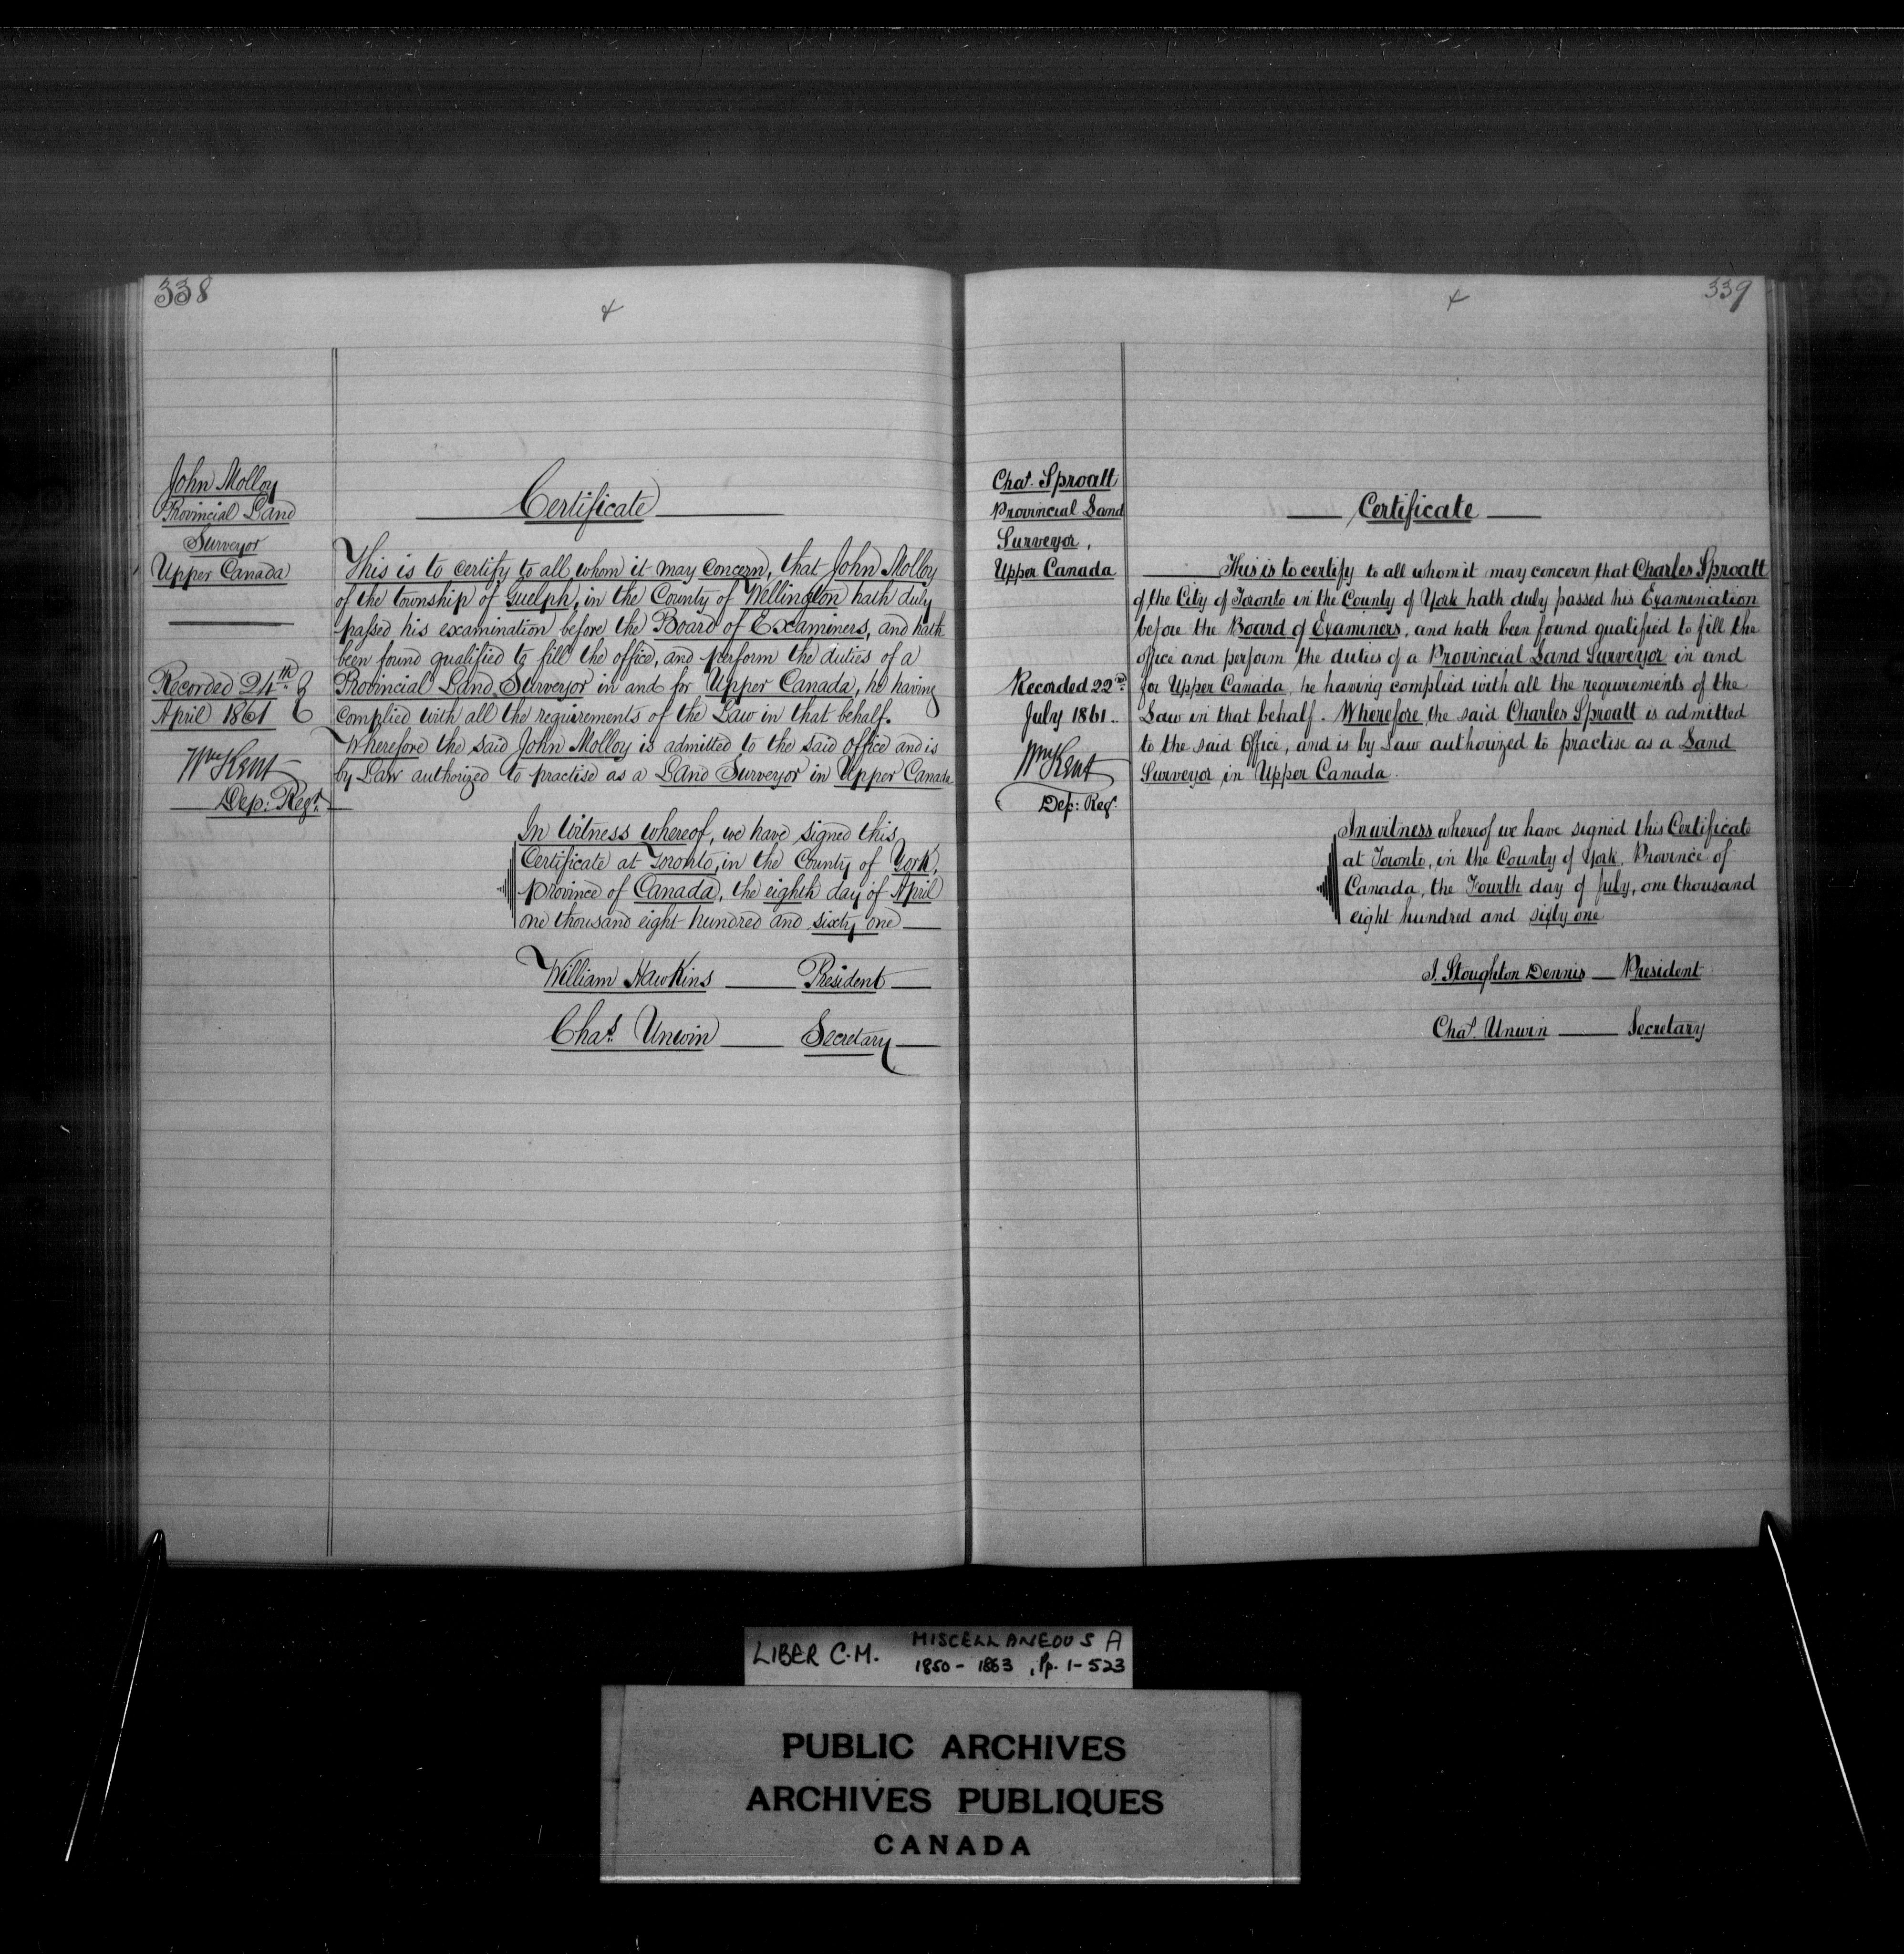 338
John Molloy
Provincial Land
Surveyor
Upper Canada
Recorded 24th
April 1861
Wm Kent
Dep: Regr
Certificate
This is to certify to all whom it may concern, that John Molloy
of the township of Guelph, in the County of Wellington hath duly
passed his examination before the Board of Examiners, and hath
been found qualified to fill the office, and perform the duties of a
Provincial Land Surveyor in and for Upper Canada, he having
complied with all the requirements of the Law in that behalf.
Wherefore the said John Molloy is admitted to the said office and is
by Law authorized to practise as a Land Surveyor in Upper Canada
In Witness whereof, we have signed this
Certificate at Toronto, in the County of York,
Province of Canada, the eighth day of April
one thousand eight hundred and sixty one
William Hawkins President
Chas. Unwin Secretary
339
Chas. Sproatt
Provincial Land
Surveyor,
Upper Canada
Recorded 22nd
July 1861.
Wm Kent
Dep: Regr.
Certificate
This is to certify to all whom it may concern that Charles Sproatt
of the City of Toronto in the County of York hath duly passed his Examination
before the Board of Examiners, and hath been found qualified to fill the
office and perform the duties of a Provincial Land Surveyor in and
for Upper Canada, he having complied with all the requirements of the
Law in that behalf. Wherefore the said Charles Sproatt is admitted
to the said Office, and is by Law authorized to practise as a Land
Surveyor in Upper Canada.
In witness whereof we have signed this Certificate
at Toronto, in the County of York, Province of
Canada, the Fourth day of July, one thousand
eight hundred and sixty one
J. Stoughton Dennis President
Chas. Unwin Secretary
LIBER C.M. MISCELLANEOUS A
1850 - 1863, Pp. 1-523
PUBLIC ARCHIVES
ARCHIVES PUBLIQUES
CANADA